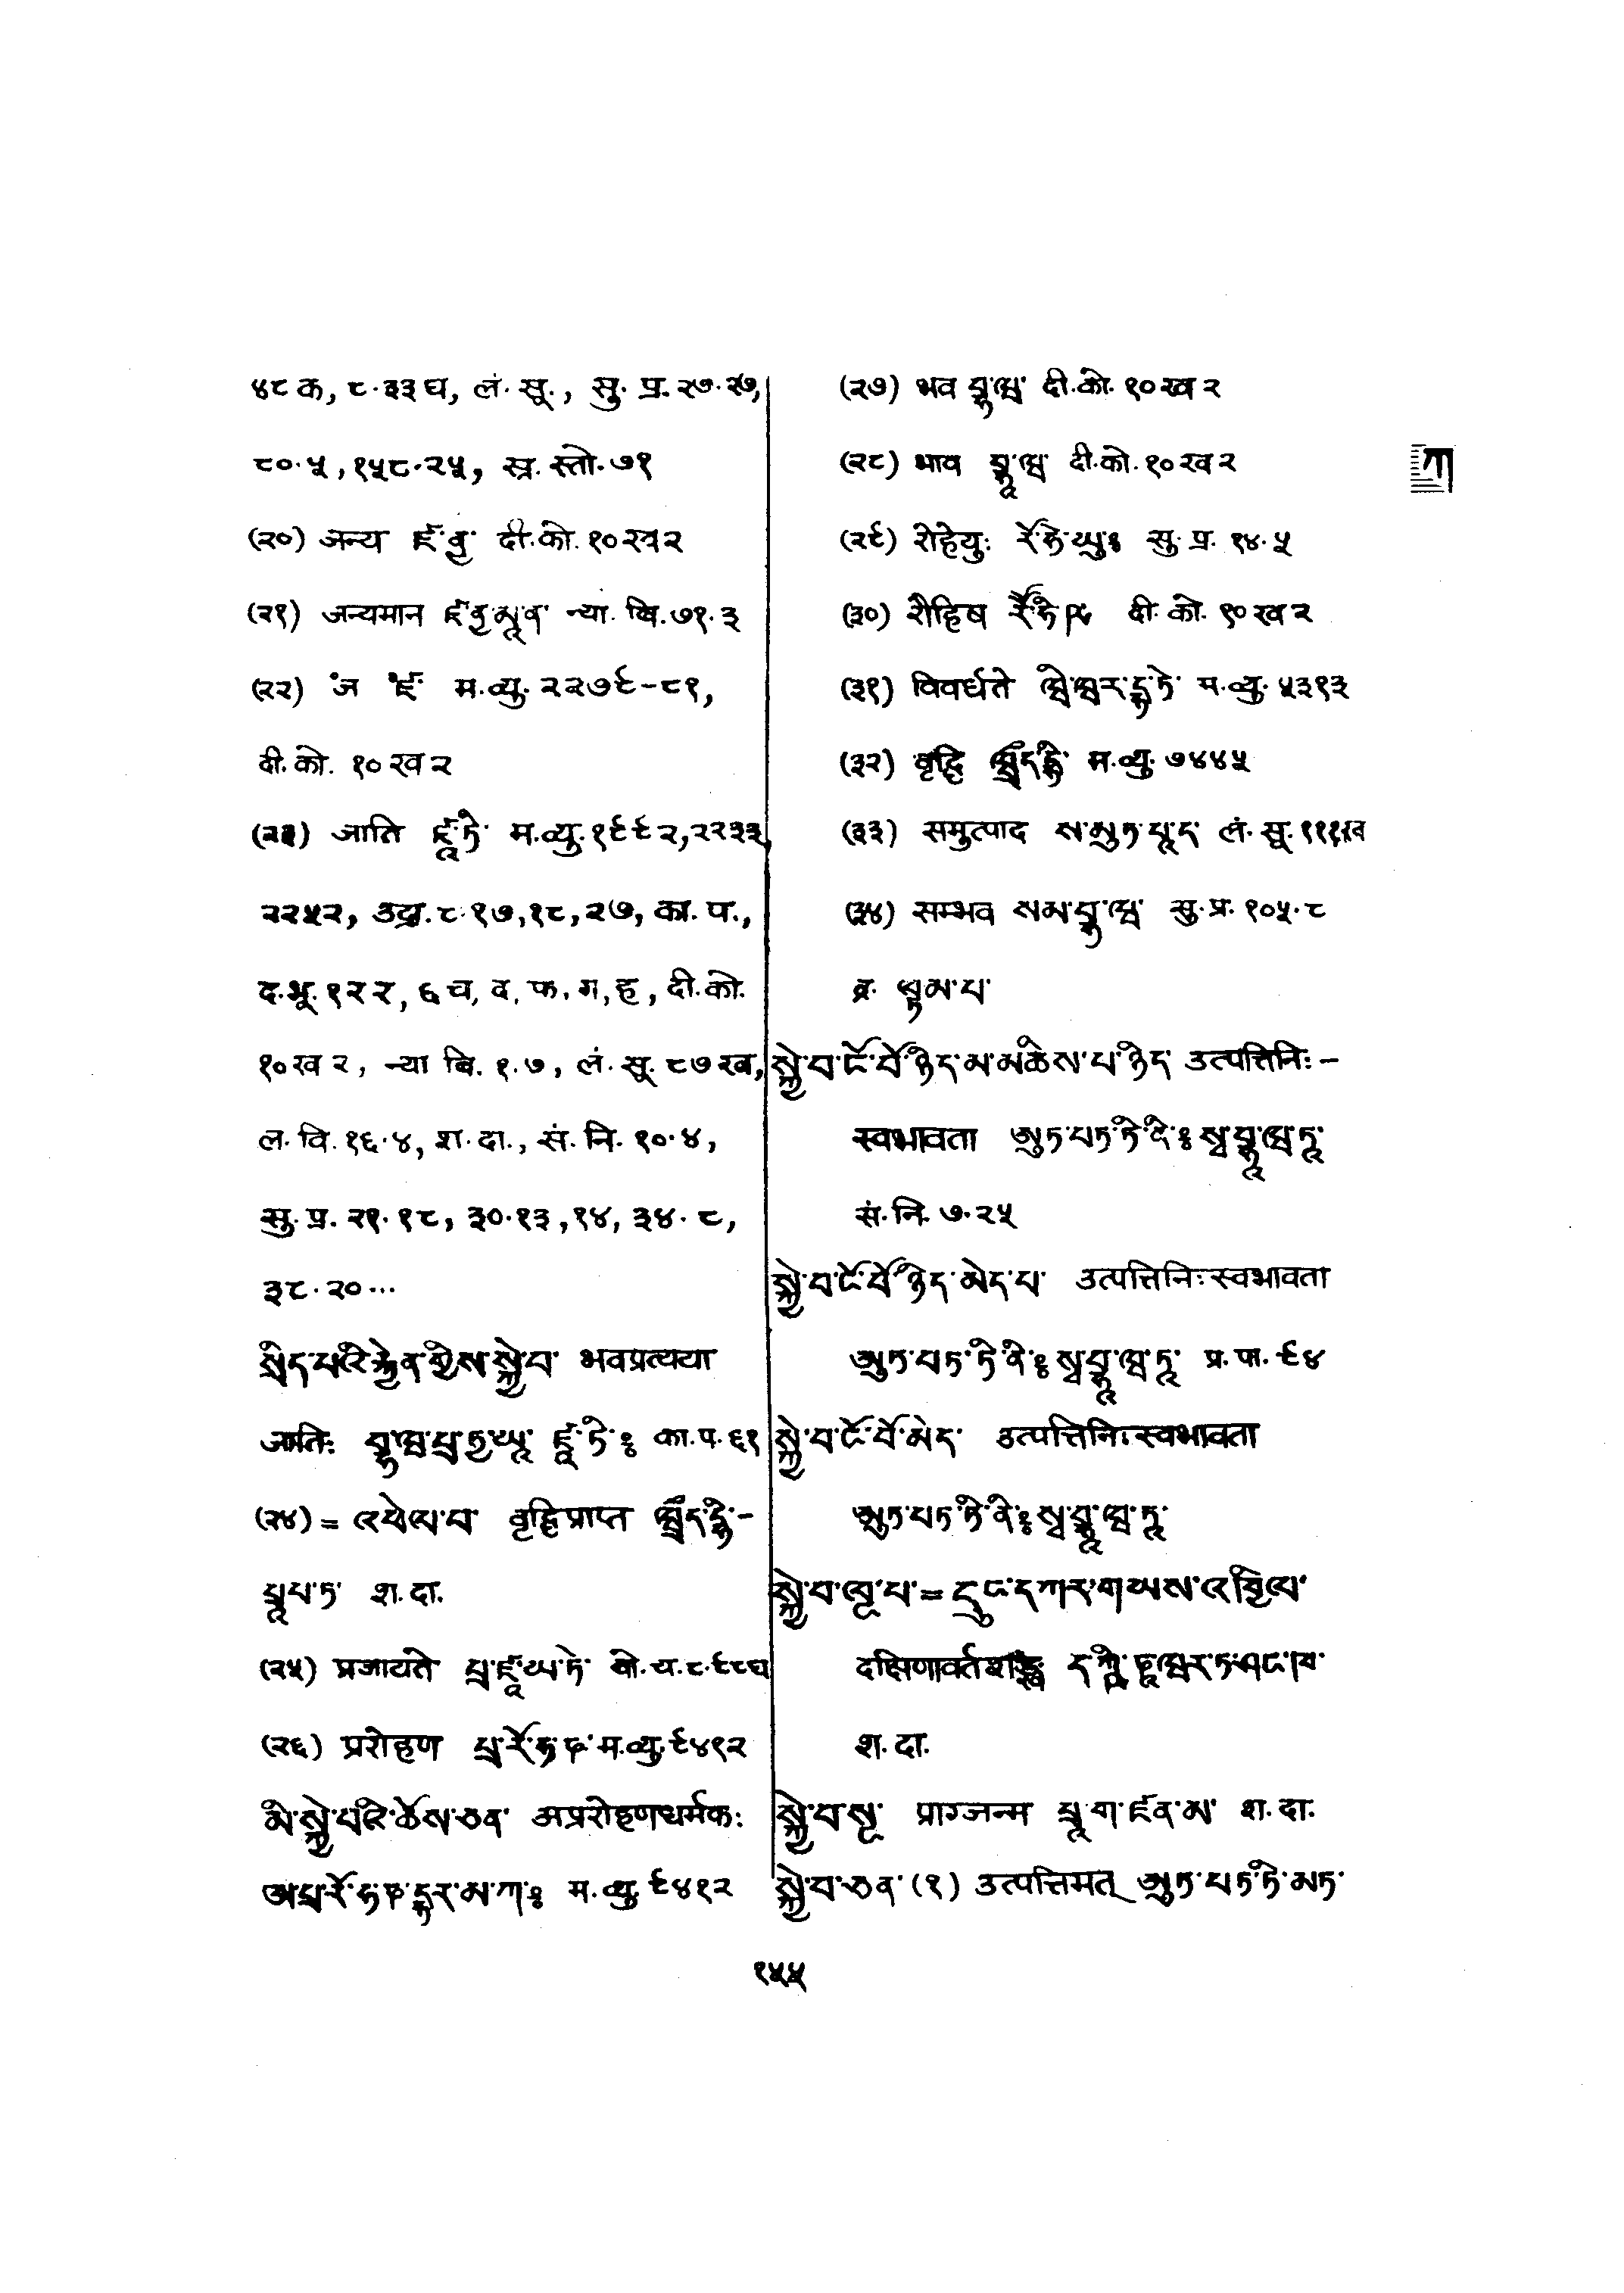 ४८ क, ८.३३ घ, लं. सू., सु. प्र. २७.२७,
८०.५, १५८.२५, स्र. स्तो. ७१
(२०) जन्य ཛ་ནྱ་ दी. को. १० ख २
(२१) जन्यमान ཛ་ནྱ་མཱ་ན་ न्या. बि. ७१.३
(२२) जं ཛཾ་ म. व्यु. २२७९-८१,
दी. को. १० ख २
(२३) जाति ཛཱ་ཏི་ म. व्यु. १९९२, २२३३,
२२५२, उद्रा. ८.१७, १८, २७, का. प.,
द. भू. १२२, ६ च, द, फ, ग, ह, दी. को.
१० ख २, न्या बि. १.७, लं. सू. ८७ ख,
ल. वि. १६.४, श. दा., सं. नि. १०.४,
सु. प्र. २१.१८, ३०.१३, १४, ३४.८,
३८.२०...
སྲིད་པའི་རྐྱེན་གྱིས་སྐྱེ་བ་ भवप्रत्यया
जातिः བྷ་ཝ་པྲ་ཏྱ་ཡཱ་ ཛཱ་ཏིཿ का. प. ६१
(२४) = འཕེལ་བ་ वृद्धिप्राप्त ཝྲྀད་དྷི་-
པྲཱཔ་ཏ་ श. दा.
(२५) प्रजायते པྲ་ཛཱ་ཡ་ཏེ་ बो. च. ८.९८ घ
(२६) प्ररोहण པྲ་རོ་ཧ་ཎ་ म. व्यु. ९४१२
མི་སྐྱེ་བའི་ཆོས་ཅན་ अप्ररोहणधर्मकः
ཨ་པྲ་རོ་ཧ་ཎ་དྷར་མ་ཀཿ म. व्यु. ९४१२
(२७) भव བྷ་ཝ་ दी. को. १० ख २
(२८) भाव བྷཱ་ཝ་ दी. को. १० ख २
(२९) रोहेयुः རོ་ཧེ་ཡུཿ सु. प्र. १४.५
(३०) रौहिष རཽ་ཧི་ཥ दी. को. १० ख २
(३१) विवर्धते ཝི་ཝར་དྷ་ཏེ་ म. व्यु. ५३१३
(३२) वृद्धि ཝྲྀད་དྷི་ म. व्यु. ७४४५
(३३) समुत्पाद ས་མུཏ་པཱ་ད་ लं. सू. १११ ख
(३४) सम्भव སམ་བྷ་ཝ་ सु. प्र. १०५.८
द्र. ལྟམ་པ་
སྐྱེ་བ་ངོ་བོ་ཉིད་མ་མཆིས་པ་ཉིད་ उत्पत्तिनिः-
स्वभावता ཨུཏ་པཏ་ཏི་ནིཿསྭ་བྷཱ་ཝ་ཏཱ་
सं. नि. ७.२५
སྐྱེ་བ་ངོ་བོ་ཉིད་མེད་པ་ उत्पत्तिनिःस्वभावता
ཨུཏ་པཏ་ཏི་ནིཿསྭ་བྷཱ་ཝ་ཏཱ་ प्र. पा. ९४
སྐྱེ་བ་ངོ་བོ་མེད་ उत्पत्तिनिःस्वभावता
ཨུཏ་པཏ་ཏི་ནིཿསྭ་བྷཱ་ཝ་ཏཱ་
སྐྱེ་བ་ལྔ་པ་ = དུང་དཀར་གཡས་འཁྱིལ་
दक्षिणावर्तशङ्ख ད་ཀྵི་ཎཱ་ཝར་ཏ་ཤང་ཁ་
श. दा.
སྐྱེ་བ་སྔ་ प्राग्जन्म པྲཱ་ག་ཛན་མ་ श. दा.
སྐྱེ་བ་ཅན་ (१) उत्पत्तिमत् ཨུཏ་པཏ་ཏི་མཏ་
ཀ
१५५